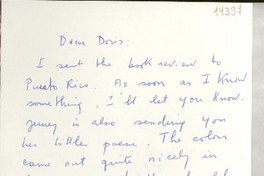 14397
Dear Doris:
I sent the book review to
Puerto Rico. As soon as I know
something, I'll let you know.
is also sending you
her little poem. The colors
came out quite nicely in